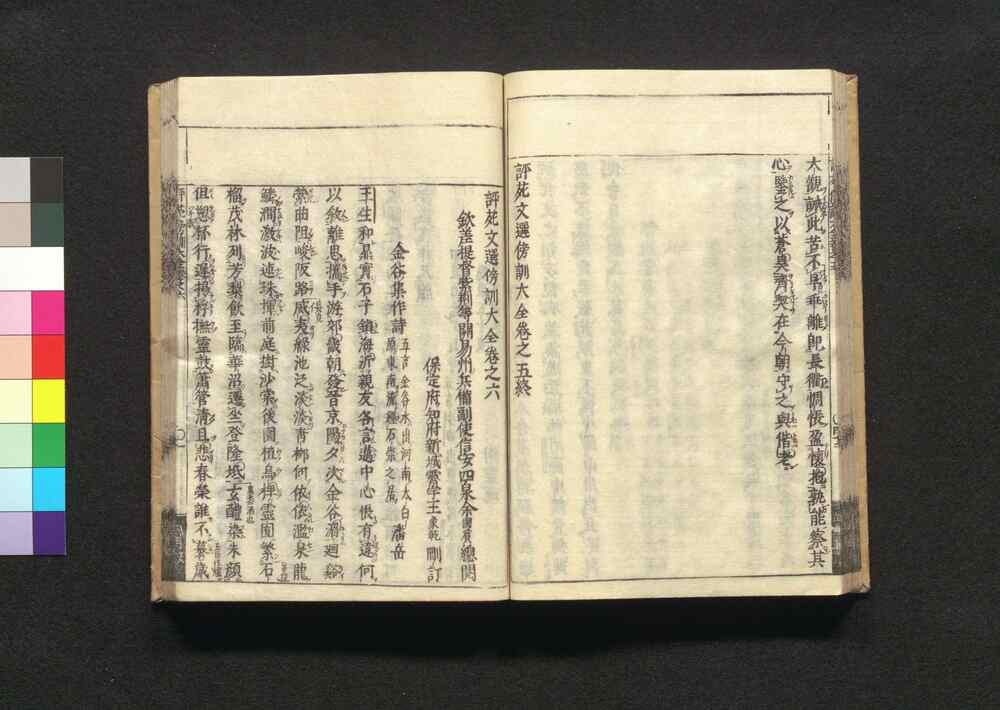 大觀誠此苦不早乖離即長衢惆悵盈懷抱孰能察其
心鑒之以蒼昊齊契在今朝守之與偕老
評苑文選傍訓大全卷之五終
評苑文選傍訓大全卷之六
欽差提督紫荊等關易州兵備副使信安四泉余國賓總閱
保定府知府新城霽宇王象乾刪訂
金谷集作詩 五言 金谷水出河南太白原東南流經石崇之居 潘岳
王生和鼎實石子鎮海沂親友各言邁中心悵有違何
以敘離思攜手游郊畿朝發晉京陽夕次金谷湄迴谿
縈曲阻峻阪路威夷綠池泛淡淡青柳何依依濫泉龍
鱗瀾激波連珠揮前庭樹沙棠後園植烏椑靈囿繁石
榴茂林列芳梨飲至臨華沼遷坐登隆坻玄醴染朱顏
但愬杯行遲揚桴撫靈鼓簫管清且悲春榮誰不慕歲